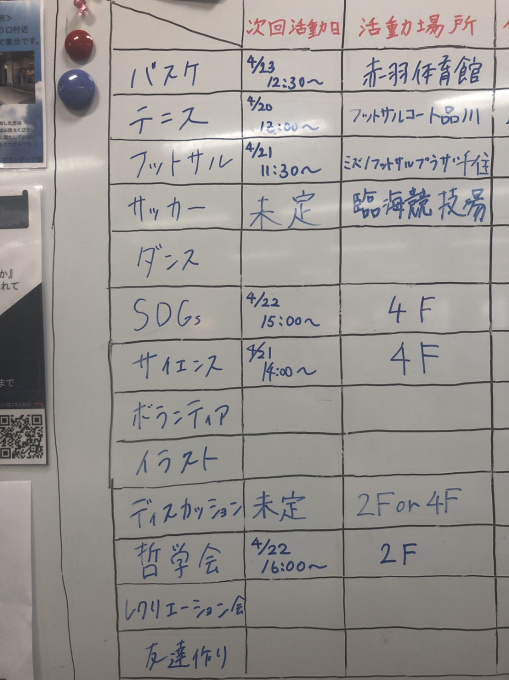 次回活動日 活動場所
バスケ 4/23 12:30～ 赤羽体育館
テニス 4/20 フットサルコート品川
フットサル 4/21 11:30～ ミズノフットサルプラザ千住
サッカー 未定 臨海競技場
ダンス
SDGs 4/22 15:00～ 4F
サイエンス 4/21 14:00～ 4F
ボランティア
イラスト
ディスカッション 未定 2For4F
哲学会 4/22 16:00～ 2F
レクリエーション会
友達作り